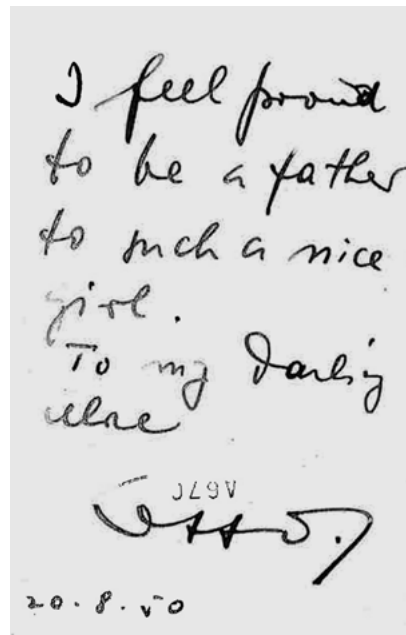 I feel proud
to be a father
to such a nice
girl.
To my Darling
Otto.
20.8.50